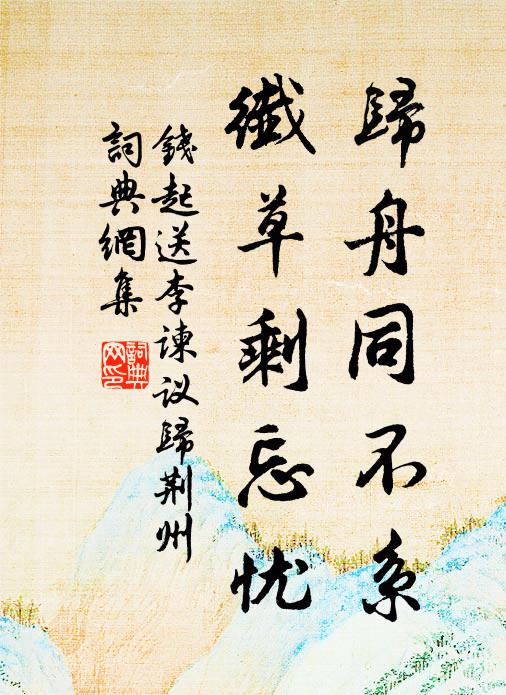 歸舟同不系
纖草剩忘忧
錢起送李諫议歸荆州
詞典網集
詞典
网印